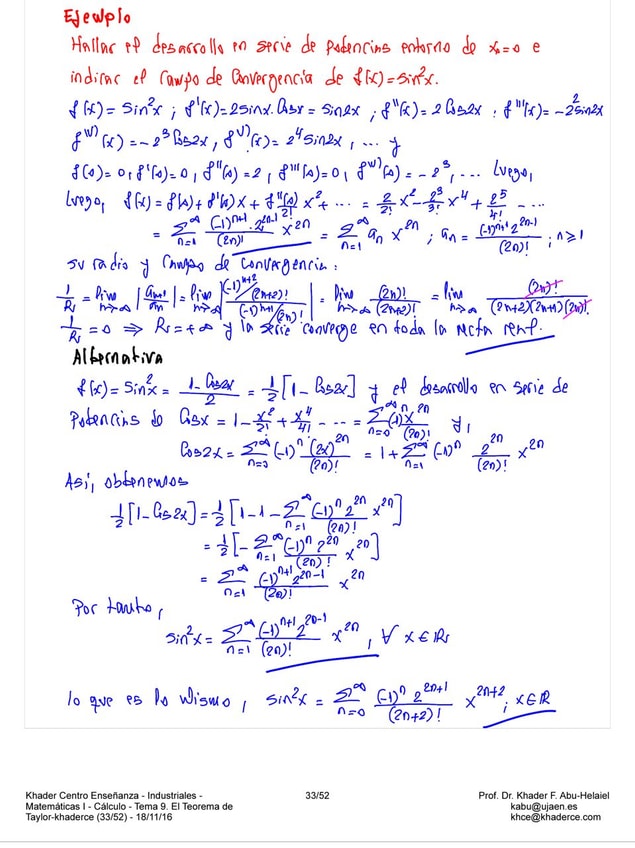 Ejemplo
Hallar el desarrollo en serie de potencias entorno de x₀=0 e
indicar el campo de convergencia de f(x)=sin²x.
f(x)=sin²x ; f'(x)=2sinx.cosx = sin2x ; f''(x)=2cos2x ; f'''(x)=-2²sin2x
f^{IV)}(x)=-2³cos2x, f^{V)}(x)=2⁴sin2x, ... y
f(0)=0, f'(0)=0, f''(0)=2, f'''(0)=0, f^{IV)}(0)=-2³, ... Luego,
Luego, f(x)=f(0)+f'(0)x+f''(0)/2! x²+ ... = 2/2! x² - 2³/3! x⁴ + 2⁵/4! - ...
= ∑_{n=1}^∞ (-1)^{n+1}.2^{2n-1}/(2n)! x^{2n} = ∑_{n=1}^∞ aₙ x^{2n} ; aₙ = (-1)^{n+1} 2^{2n-1}/(2n)! ; n≥1
su radio y campo de convergencia:
1/R = lim_{n→∞} |a_{n+1}/aₙ| = lim_{n→∞} |(-1)^{n+2}/(2n+2)! / (-1)^{n+1}/(2n)!| = lim_{n→∞} (2n)!/(2n+2)! = lim_{n→∞} (2n)!/(2n+2)(2n+1)(2n)!
1/R = 0 ⇒ R=+∞ y la serie converge en toda la recta real.
Alternativa
f(x)=sin²x = (1-cos2x)/2 = 1/2 [1-cos2x] y el desarrollo en serie de
potencias de cosx = 1 - x²/2! + x⁴/4! - ... = ∑_{n=0}^∞ (-1)^n x^{2n}/(2n)! y,
cos2x = ∑_{n=0}^∞ (-1)^n (2x)^{2n}/(2n)! = 1+∑_{n=1}^∞ (-1)^n 2^{2n}/(2n)! x^{2n}
Así, obtenemos
1/2 [1-cos2x] = 1/2 [1-1-∑_{n=1}^∞ (-1)^n 2^{2n}/(2n)! x^{2n}]
= 1/2 [-∑_{n=1}^∞ (-1)^n 2^{2n}/(2n)! x^{2n}]
= ∑_{n=1}^∞ (-1)^{n+1} 2^{2n-1}/(2n)! x^{2n}
Por tanto,
sin²x = ∑_{n=1}^∞ (-1)^{n+1} 2^{2n-1}/(2n)! x^{2n}, ∀ x∈ℝ,
lo que es lo mismo, sin²x = ∑_{n=0}^∞ (-1)^n 2^{2n+1}/(2n+2)! x^{2n+2} ; x∈ℝ
Khader Centro Enseñanza - Industriales -
Matemáticas I - Cálculo - Tema 9. El Teorema de
Taylor-khaderce (33/52) - 18/11/16
33/52
Prof. Dr. Khader F. Abu-Helaiel
kabu@ujaen.es
khce@khaderce.com